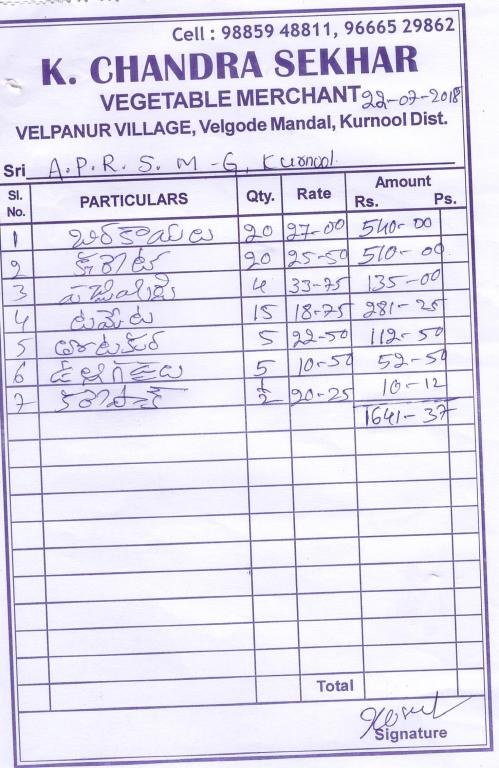 Cell : 98859 48811, 96665 29862
K. CHANDRA SEKHAR
VEGETABLE MERCHANT 22-07-2018
VELPANUR VILLAGE, Velgode Mandal, Kurnool Dist.
Sri A.P.R.S. M-G, Kurnool.
Sl. No. PARTICULARS Qty. Rate Amount Rs. Ps.
1 20 27-00 540-00
2 కారెట్ 20 25-50 510-00
3 4 33-75 135-00
4 టమోట 15 18-75 281-25
5 5 22-50 112-50
6 5 10-50 52-50
7 1/2 20-25 10-12
1641-37
Total
Signature